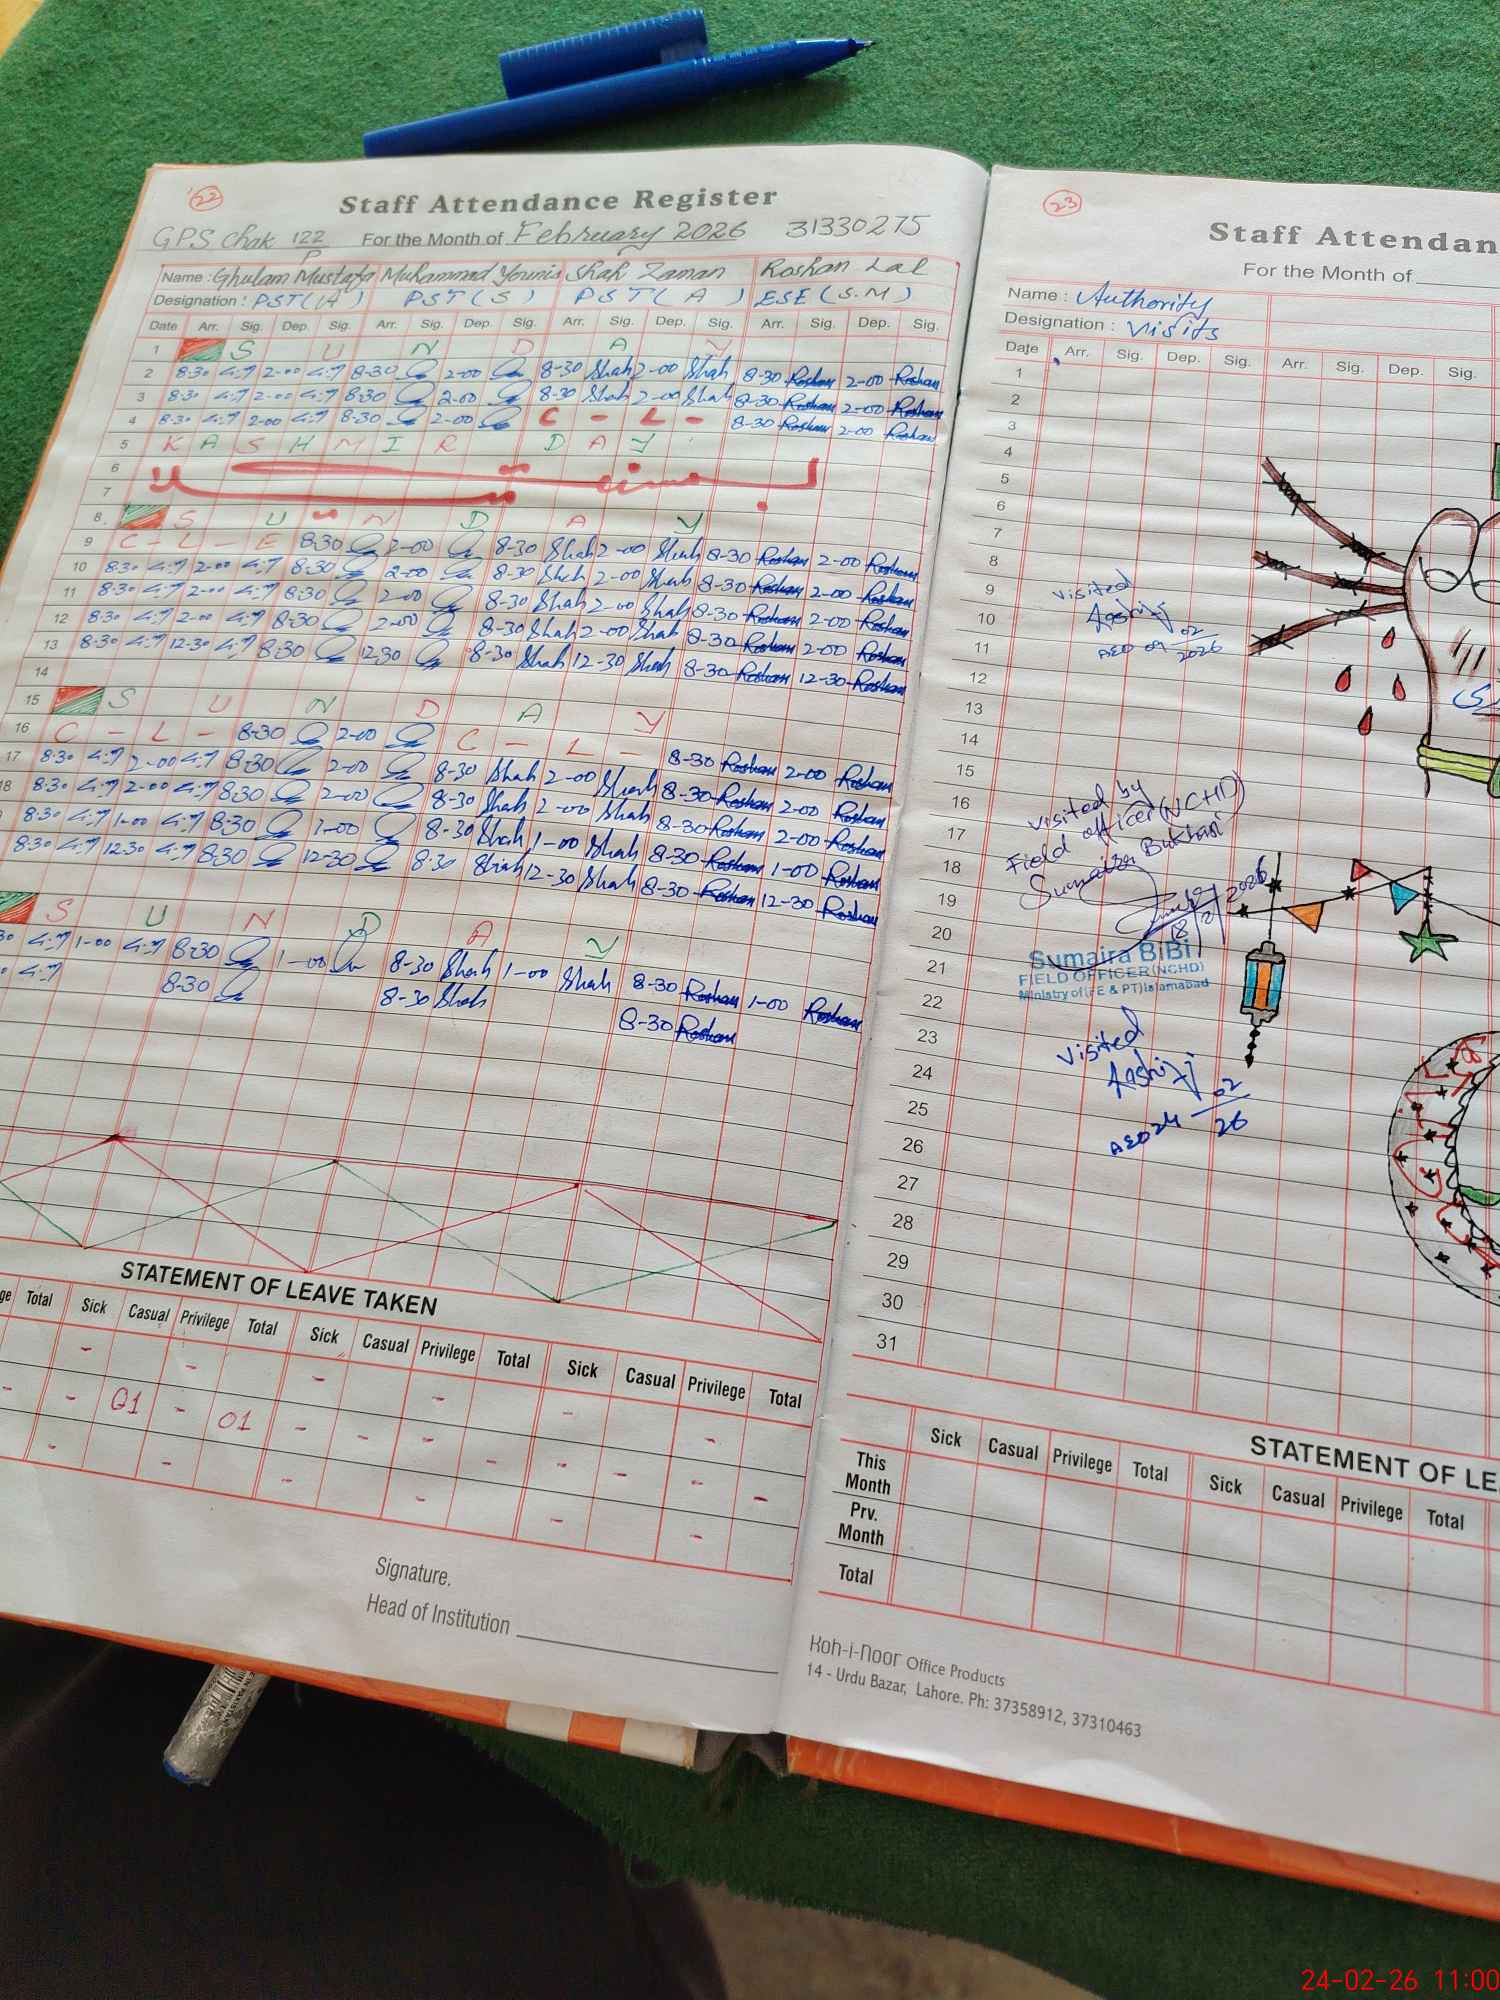 22
Staff Attendance Register
GPS Chak 122/P For the Month of February 2026 31330275
Name : Ghulam Mustafa Muhammad Younis Shah Zaman Roshan Lal
Designation : PST (A) PST (S) PST (A) ESE (S.M)
Date Arr. Sig. Dep. Sig. Arr. Sig. Dep. Sig. Arr. Sig. Dep. Sig. Arr. Sig. Dep. Sig.
1 S U N D A Y
2 8-30 2-00 8-30 2-00 8-30 Shah 2-00 Shah 8-30 Roshan 2-00 Roshan
3 8-30 2-00 8-30 2-00 8-30 Shah 2-00 Shah 8-30 Roshan 2-00 Roshan
4 8-30 2-00 8-30 2-00 C - L - 8-30 Roshan 2-00 Roshan
5 K A S H M I R D A Y
6
7
8 S U N D A Y
9 C - L - E 8-30 2-00 8-30 Shah 2-00 Shah 8-30 Roshan 2-00 Roshan
10 8-30 2-00 8-30 2-00 8-30 Shah 2-00 Shah 8-30 Roshan 2-00 Roshan
11 8-30 2-00 8-30 2-00 8-30 Shah 2-00 Shah 8-30 Roshan 2-00 Roshan
12 8-30 2-00 8-30 2-00 8-30 Shah 2-00 Shah 8-30 Roshan 2-00 Roshan
13 8-30 12-30 8-30 12-30 8-30 Shah 12-30 Shah 8-30 Roshan 12-30 Roshan
14
15 S U N D A Y
16 C - L - 8-30 2-00 C - L - 8-30 Roshan 2-00 Roshan
17 8-30 2-00 8-30 2-00 8-30 Shah 2-00 Shah 8-30 Roshan 2-00 Roshan
8 8-30 2-00 8-30 2-00 8-30 Shah 2-00 Shah 8-30 Roshan 2-00 Roshan
8-30 1-00 8-30 1-00 8-30 Shah 1-00 Shah 8-30 Roshan 1-00 Roshan
8-30 12-30 8-30 12-30 8-30 Shah 12-30 Shah 8-30 Roshan 12-30 Roshan
S U N D A Y
30 1-00 8-30 1-00 8-30 Shah 1-00 Shah 8-30 Roshan 1-00 Roshan
8-30 8-30 Shah 8-30 Roshan
STATEMENT OF LEAVE TAKEN
ge Total Sick Casual Privilege Total Sick Casual Privilege Total Sick Casual Privilege Total
- - - - - -
- - 01 - 01 - - - - -
Signature.
Head of Institution
23
Staff Attendan
For the Month of
Name : Authority
Designation : Visits
Date Arr. Sig. Dep. Sig. Arr. Sig. Dep. Sig.
1
2
3
4
5
6
7
8
9
10
11
12
13
14
15
16
17
18
19
20
21
22
23
24
25
26
27
28
29
30
31
visited
AEO 09 02/2026
visited by
Field officer (NCHD)
Sumaira Bukhari
18/2/2026
Sumaira BiBi
FIELD OFFICER (NCHD)
Ministry of (FE & PT) Islamabad
visited
AEO 24 - 02/26
STATEMENT OF LE
Sick Casual Privilege Total Sick Casual Privilege Total
This Month
Prv. Month
Total
Koh-i-noor Office Products
14 - Urdu Bazar, Lahore. Ph: 37358912, 37310463
24-02-26 11:00